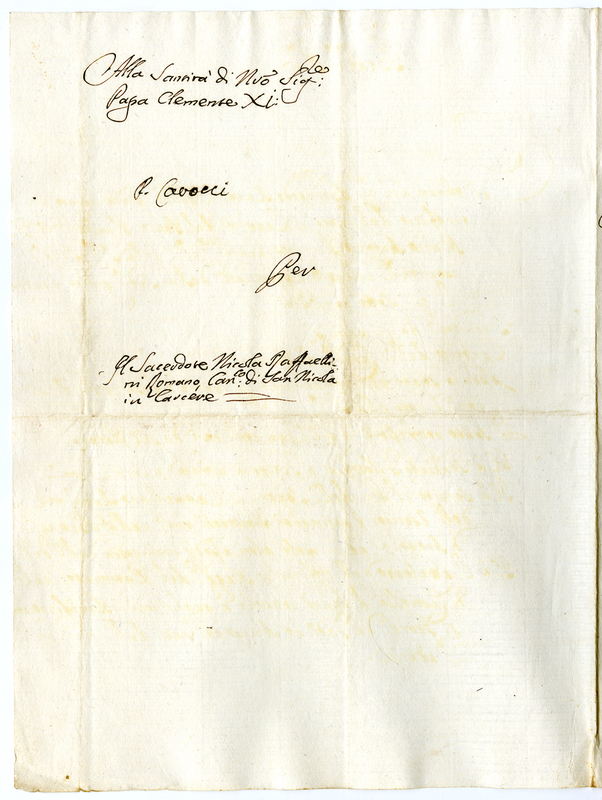 Alla Santità di Nrõ Sigre:
Papa Clemente XI:
P. Cavocci
Per
Il Sacerdote Nicola Raffaelli:
ni Romano, Canco: di San Nicola
in Carcere